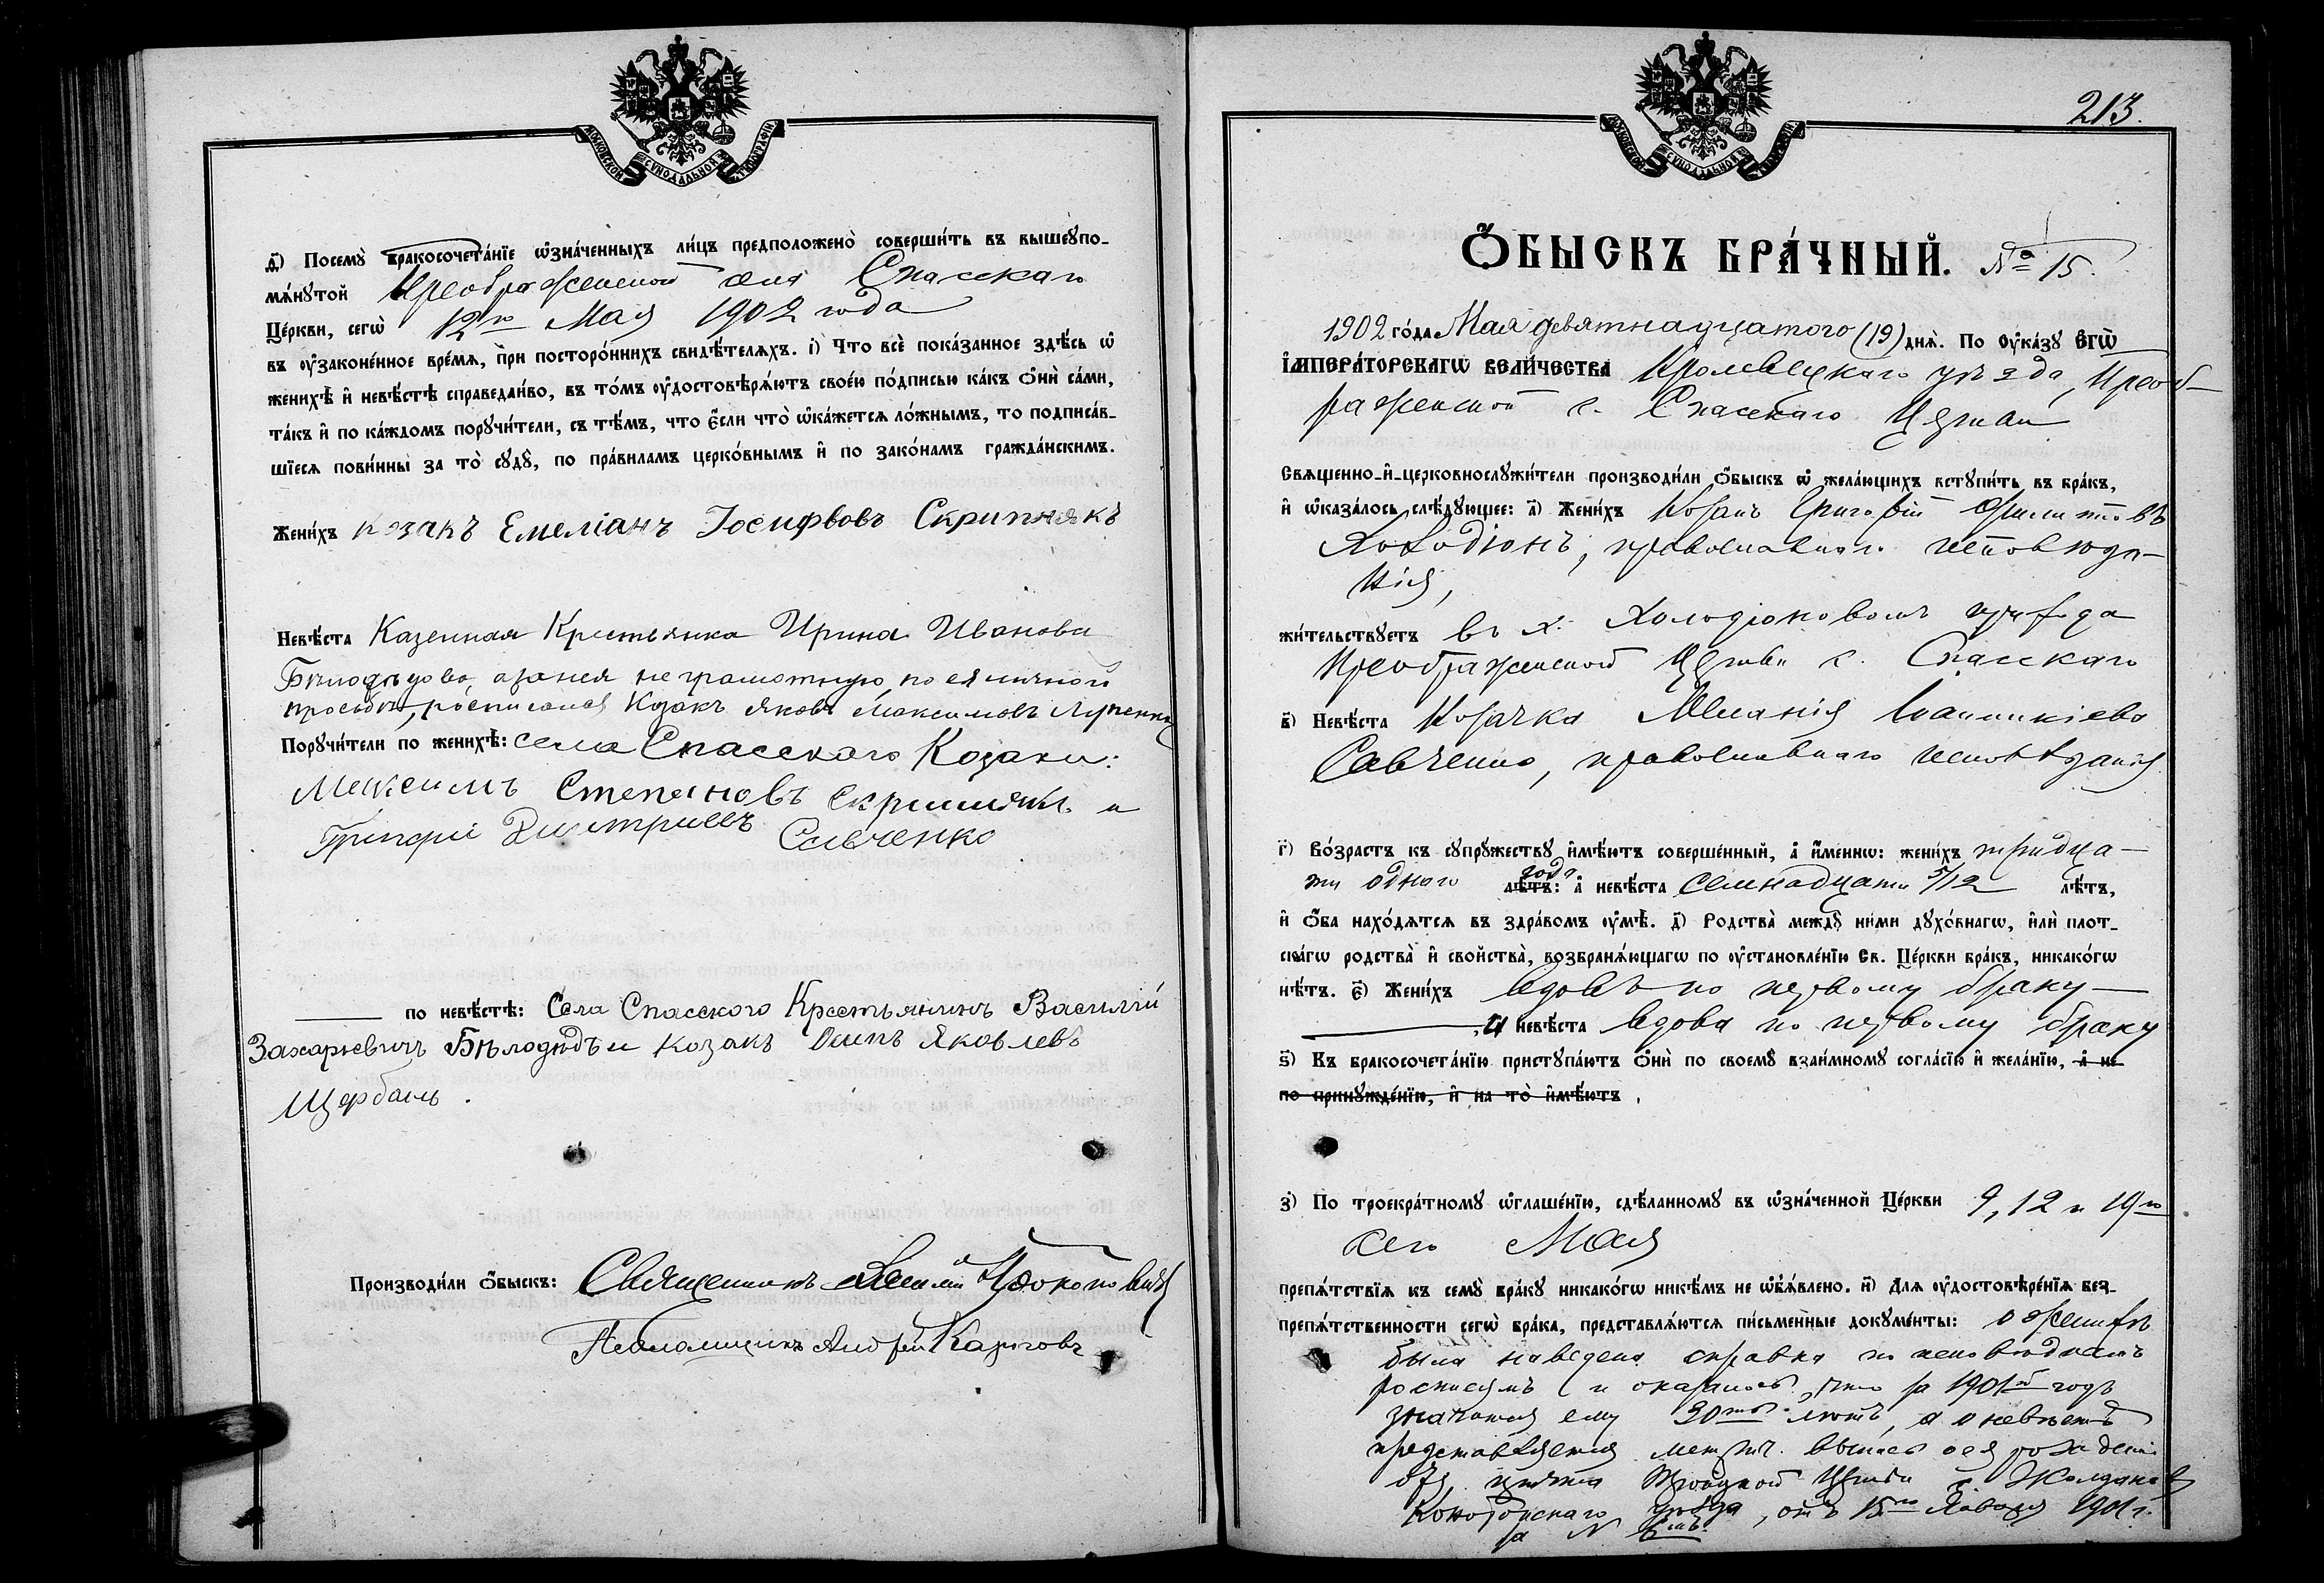 МОСКОВСКОЙ СУНОДАЛЬНОЙ ТИПОГРАФІИ
д҃) Посемꙋ̀ бракосочета́нїе ѡ҆зна́ченныхъ ли́цъ предположено̀ соверши́ть въ вышеꙋпо-
мѧ́нꙋтой Преображенской села Спасскаго
Це́ркви, сегѡ̀ 12го Мая 1902 года
въ ᲂу҆законе́нное вре́мѧ, при посторо́ннихъ свидѣ́телѧхъ. і҃) Что всѐ пока́занное здѣ́сь ѡ҆
женихѣ̀ и҆ невѣ́стѣ справедли́во, въ то́мъ ᲂу҆достовѣрѧ́ютъ свое́ю по́дписью ка́къ ѻ҆нѝ са́ми,
та́къ и҆ по ка́ждомъ порꙋчи́тели, съ тѣ́мъ, что є҆́сли что̀ ѡ҆ка́жетсѧ ло́жнымъ, то подписа́в-
шїесѧ пови́нны за то̀ сꙋдꙋ̀, по пра́виламъ церко́внымъ и҆ по зако́намъ гражда́нскимъ.
Жени́хъ козакъ Емеліанъ Іосифовъ Скрипнякъ
Невѣ́ста Казенная Крестьянка Ирина Иванова
Бѣлодѣдова, а за нея неграмотную, по ея личной
просьбѣ, росписался Козакъ Яковъ Максимовъ
Порꙋчи́тели по женихѣ̀: села Спасскаго Козаки:
Максимъ Степановъ Скрипникъ и
Григорій Димитріевъ Савченко
по невѣ́стѣ: Села Спасского Крестьянинъ Василій
Захарьевичъ Бѣлодѣдъ и козакъ Осипъ Яковлевъ
Щербань.
Производи́ли ѻ҆́быскъ: Священникъ Василій
Псаломщикъ Андрей
МОСКОВСКОЙ СУНОДАЛЬНОЙ ТИПОГРАФІИ
213.
Ѻ҆́БЫСКЪ БРА́ЧНЫЙ. № 15.
1902 го́да Мая девятнадцатого (19) днѧ̀. По ᲂу҆ка́зꙋ Є҆ГѠ̀
І҆МПЕРА́ТОРСКАГѠ ВЕЛИ́ЧЕСТВА Кролевецкаго уѣзда, Преоб-
раженской с. Спасскаго Церкви
Свѧще́нно-и҆-церковнослꙋжи́тели производи́ли ѻ҆́быскъ ѡ҆ жела́ющихъ встꙋпи́ть въ бра́къ,
и҆ ѡ҆каза́лось слѣ́дꙋющее: а҃) Жени́хъ Козакъ Григорій Филиповъ
Холодіонъ, православнаго исповѣда-
нія,
жи́тельствꙋетъ въ х. Холодіоновомъ прихода
Преображенской Церкви с. Спасскаго
в҃) Невѣ́ста Козачка Меланія Іоанникіева
Савченко, православнаго исповѣданія
г҃) Во́зрастъ къ сꙋпрꙋ́жествꙋ и҆мѣ́ютъ соверше́нный, а҆ и҆́менно: жени́хъ тридца-
ти одного года лѣ́тъ: а҆ невѣ́ста семнадцати 5/12 лѣ́тъ,
и҆ ѻ҆́ба нахо́дѧтсѧ въ здра́вомъ ᲂу҆мѣ̀. д҃) Родства̀ междꙋ̀ ни́ми дꙋхо́внагѡ, и҆лѝ плот-
ска́гѡ родства̀ и҆ сво́йства̀, возбранѧ́ющагѡ по ᲂу҆становле́нїю Св. Це́ркви бра́къ, никако́гѡ
нѣ́тъ. є҃) Жени́хъ вдовъ по первому браку
, и невѣ́ста вдова по первому браку
ѕ҃) Къ бракосочета́нїю пристꙋпа́ютъ ѻ҆нѝ по своемꙋ̀ взаи́мномꙋ согла́сїю и҆ жела́нїю, а҆ не
по принꙋжде́нїю, и҆ на то̀ и҆мѣ́ютъ
з҃) По троекра́тномꙋ ѡ҆глаше́нїю, сдѣ́ланномꙋ въ ѡ҆зна́ченной Це́ркви 9, 12 и 19го
сего Мая
препѧ́тствїѧ къ семꙋ̀ бра́кꙋ никако́гѡ никѣ́мъ не ѡ҆б̾ѧ́влено. и҃) Для ᲂу҆достовѣре́нїѧ без-
препѧ́тственности сегѡ̀ бра́ка, представлѧ́ютсѧ пи́сьменные докꙋме́нты: о женихѣ
была наведена справка по исповѣднымъ
росписямъ и оказалось, что за 1901й годъ
значится ему 30ть лѣтъ, а о невѣстѣ
представляется метрич. выпись о ея рожденіи
отъ причта Троицкой Церкви с.
Конотопскаго уѣзда, отъ 15го Января 1901 г.
за №